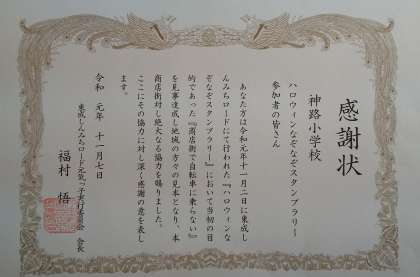 感謝状
神路小学校
ハロウィンなぞなぞスタンプラリー
参加者の皆さん
あなた方は令和元年十一月二日に東成し
んみちロードにて行われた『ハロウィンな
ぞなぞスタンプラリー』において当初の目
的であった『商店街で自転車に乗らない』
を見事達成し地域の方々の見本となり、本
商店街対し絶大なる協力を賜りました。
ここにその協力に対し深く感謝の意を表し
ます。
令和 元年 十一月七日
東成しんみちロード元気っ子実行委員会 会長
福村 悟